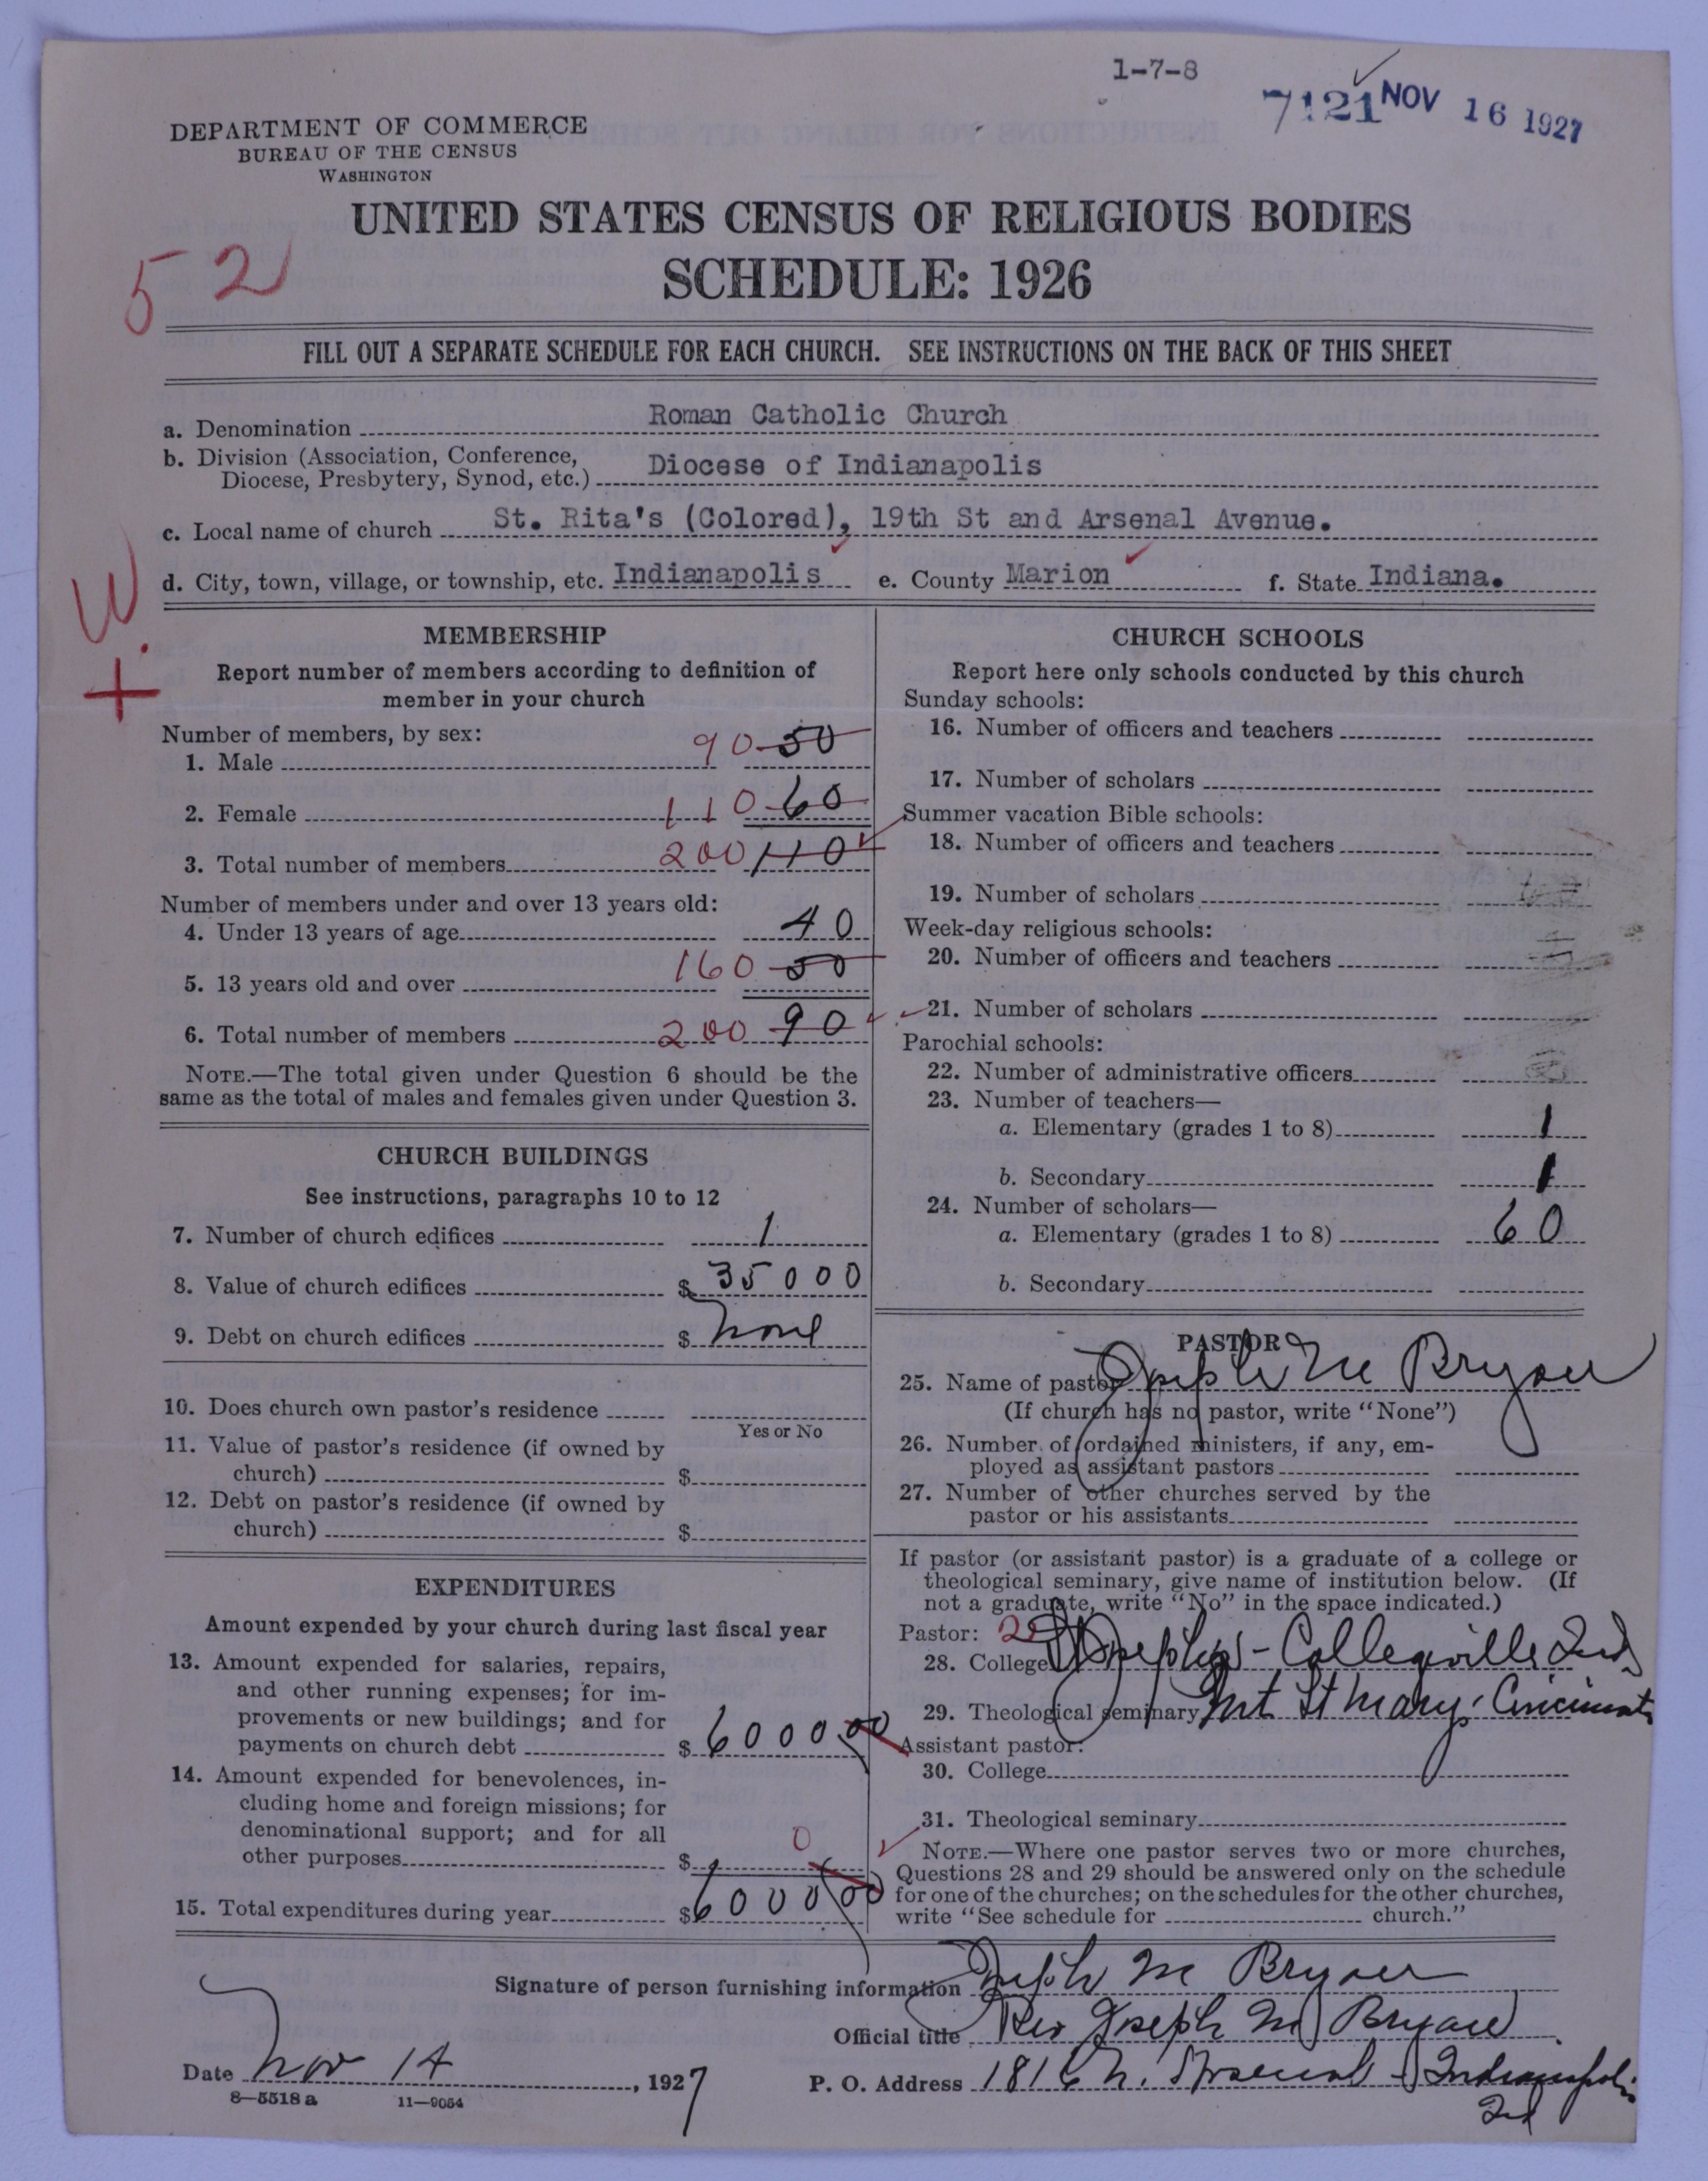 1-7-8
7121 NOV 16 1927
DEPARTMENT OF COMMERCE
BUREAU OF THE CENSUS
WASHINGTON
UNITED STATES CENSUS OF RELIGIOUS BODIES
52
SCHEDULE: 1926
FILL OUT A SEPARATE SCHEDULE FOR EACH CHURCH. SEE INSTRUCTIONS ON THE BACK OF THIS SHEET
a. Denomination Roman Catholic Church
b. Division (Association, Conference, Diocese, Presbytery, Synod, etc.) Diocese of Indianapolis
c. Local name of church St. Rita's (Colored), 19th St and Arsenal Avenue.
d. City, town, village, or township, etc. Indianapolis e. County Marion f. State Indiana.
W.
+
MEMBERSHIP
Report number of members according to definition of
member in your church
Number of members, by sex:
1. Male 90 50
2. Female 110 60
3. Total number of members 200 110
Number of members under and over 13 years old:
4. Under 13 years of age 40
5. 13 years old and over 160 50
6. Total number of members 200 90
NOTE.—The total given under Question 6 should be the
same as the total of males and females given under Question 3.
CHURCH BUILDINGS
See instructions, paragraphs 10 to 12
7. Number of church edifices 1
8. Value of church edifices $ 35000
9. Debt on church edifices $ None
10. Does church own pastor's residence
Yes or No
11. Value of pastor's residence (if owned by
church) $
12. Debt on pastor's residence (if owned by
church) $
EXPENDITURES
Amount expended by your church during last fiscal year
13. Amount expended for salaries, repairs,
and other running expenses; for im-
provements or new buildings; and for
payments on church debt $ 6000 00
14. Amount expended for benevolences, in-
cluding home and foreign missions; for
denominational support; and for all
other purposes $ 0
15. Total expenditures during year $ 6000 00
CHURCH SCHOOLS
Report here only schools conducted by this church
Sunday schools:
16. Number of officers and teachers
17. Number of scholars
Summer vacation Bible schools:
18. Number of officers and teachers
19. Number of scholars
Week-day religious schools:
20. Number of officers and teachers
21. Number of scholars
Parochial schools:
22. Number of administrative officers
23. Number of teachers—
a. Elementary (grades 1 to 8) 1
b. Secondary 1
24. Number of scholars—
a. Elementary (grades 1 to 8) 60
b. Secondary
PASTOR
25. Name of pastor Joseph M Bryan
(If church has no pastor, write "None")
26. Number of ordained ministers, if any, em-
ployed as assistant pastors
27. Number of other churches served by the
pastor or his assistants
If pastor (or assistant pastor) is a graduate of a college or
theological seminary, give name of institution below. (If
not a graduate, write "No" in the space indicated.)
Pastor: 2
28. College St Josephs - Collegeville Ind
29. Theological seminary Mt St Marys Cincinnati
Assistant pastor:
30. College
31. Theological seminary
NOTE.—Where one pastor serves two or more churches,
Questions 28 and 29 should be answered only on the schedule
for one of the churches; on the schedules for the other churches,
write "See schedule for church."
Signature of person furnishing information Joseph M Bryan
Official title Rev Joseph M Bryan
Date Nov 14, 1927
P. O. Address 1816 N. Arsenal - Indianapolis
Ind
8—5518 a 11—9054